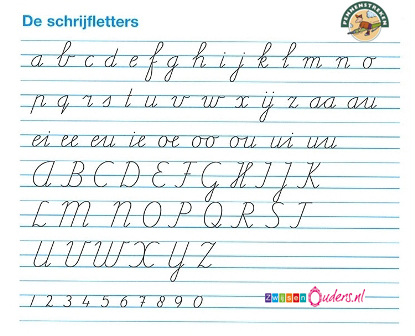 De schrijfletters
PENNENSTREKEN
a b c d e f g h i j k l m n o
p q r s t u v w x ij z aa au
ei ee eu ie oe oo ou ui uu
A B C D E F G H I J K
L M N O P Q R S T
U V W X Y Z
1 2 3 4 5 6 7 8 9 0
zwijsenOuders.nl